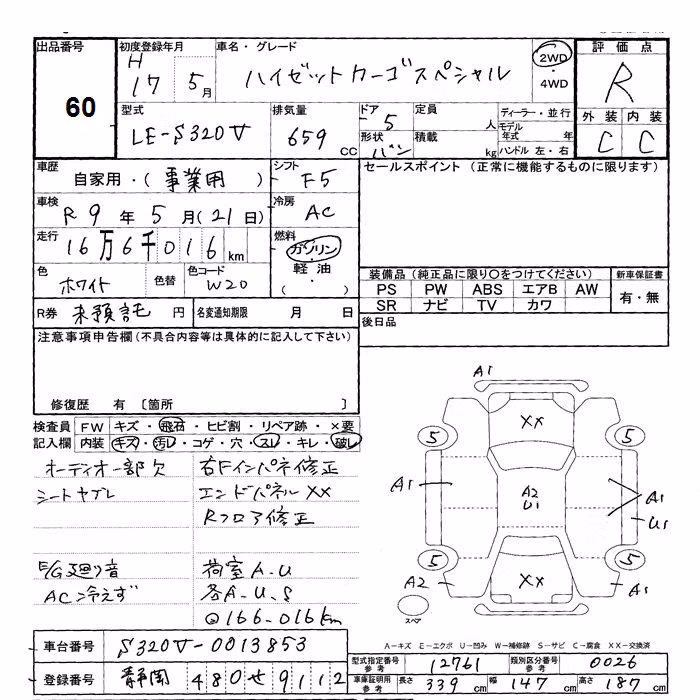 出品番号
60
初度登録年月
H
17 5月
車名・グレード
ハイゼットカーゴスペシャル
2WD
・
4WD
評価点
R
外装 内装
C C
型式
LE-S320V
排気量
659 CC
ドア
5
形状
バン
定員
人
積載
kg
ディーラー・並行
モデル
年式 年
ハンドル 左・右
車歴
自家用・(事業用)
シフト
F5
セールスポイント (正常に機能するものに限ります)
車検
R 9年 5月(21日)
冷房
AC
走行
16万6千016km
燃料
ガソリン
軽油
( ・ )
色
ホワイト
色替
色コード
W20
装備品 (純正品に限り○をつけてください)
新車保証書
PS PW ABS エアB AW
SR ナビ TV カワ
有・無
R券 未預託 円
名変通知期限 月 日
後日品
注意事項申告欄(不具合内容等は具体的に記入して下さい)
修復歴 有 〔箇所 〕
検査員
記入欄
FW キズ・飛石・ヒビ割・リペア跡・×要
内装 キズ・汚レ・コゲ・穴・スレ・キレ・破レ
オーディオ一部欠 右Fインパネ修正
シートヤブレ エンドパネルXX
Rフロア修正
E/G廻り音 荷室A.U
AC冷えず 各A.U.S
◎166.016km
A1
XX
5 5
A1
A2
U1
A1
U1
5 5
XX
A2
A1
スペア
A-キズ E-エクボ U-凹み W-補修跡 S-サビ C-腐食 XX-交換済
車台番号 S320V-0013853
登録番号 静岡 480せ9112
型式指定番号
参考
12761
類別区分番号
参考
0026
車庫証明用
参考
長さ 339cm 幅 147cm 高さ 187cm